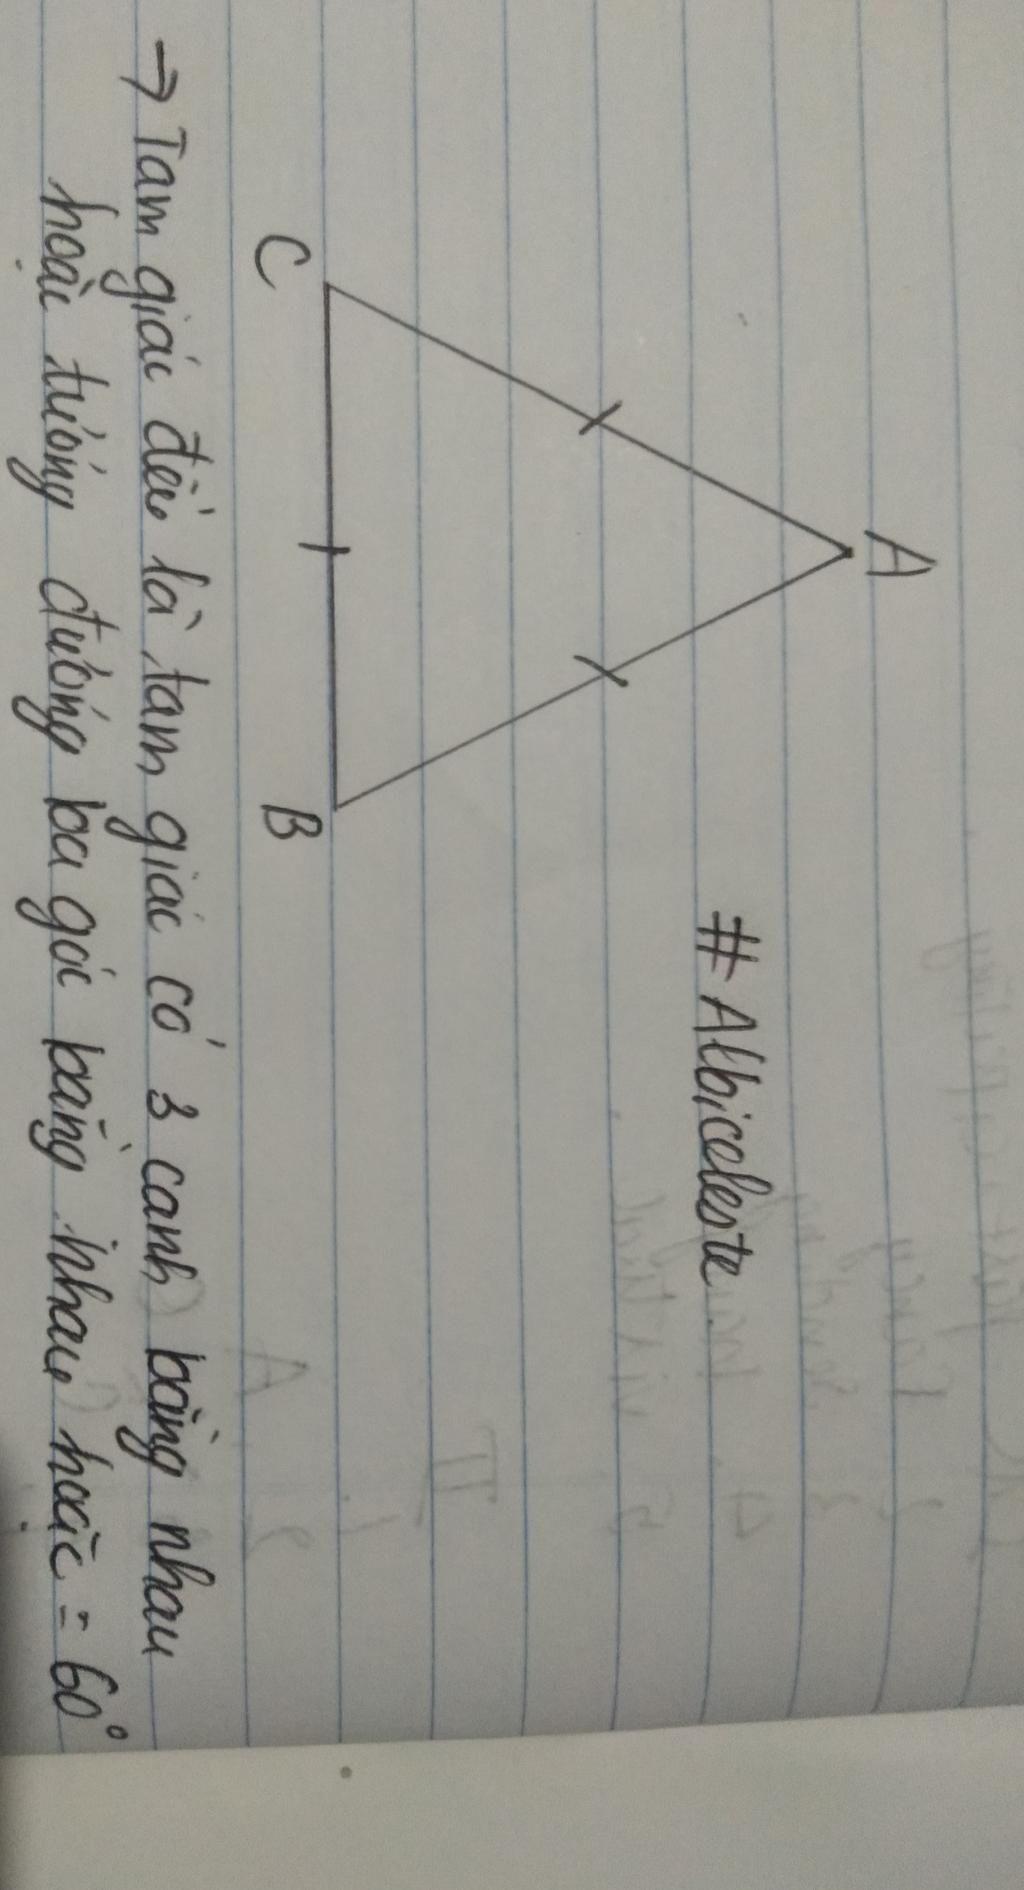 A
# Albiceleste
C
B
→ Tam giác đều là tam giác có 3 cạnh bằng nhau
hoặc tương đương ba góc bằng nhau hoặc = 60°